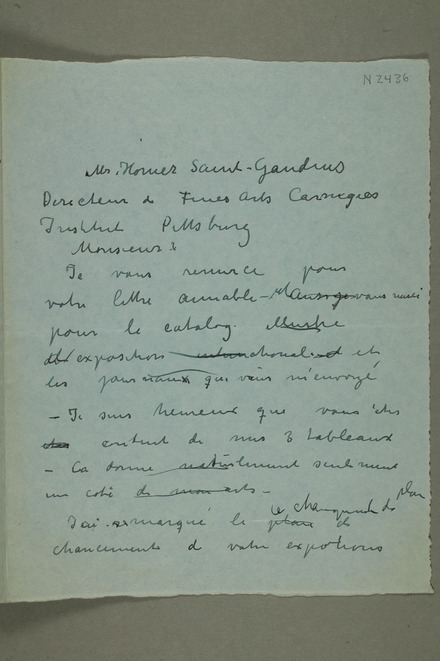 N 2436
Mr. Homer Saint-Gaudens
Directeur de Fines Arts Carnegies
Institut Pittsburg
Monsieur
Je vous remerce pour
votre lettre aimable - et vous merci
pour le catalog. illustre
exposition international et
les journaux que vous m'envoyé
- Je suis heureux que vous êtes
contunt de mes 3 tableaux
- Ca donne naturlement seulement
un coté de mon arts -
le changement de plan
J'ai remarqué le plan de
chancements d votre expotions